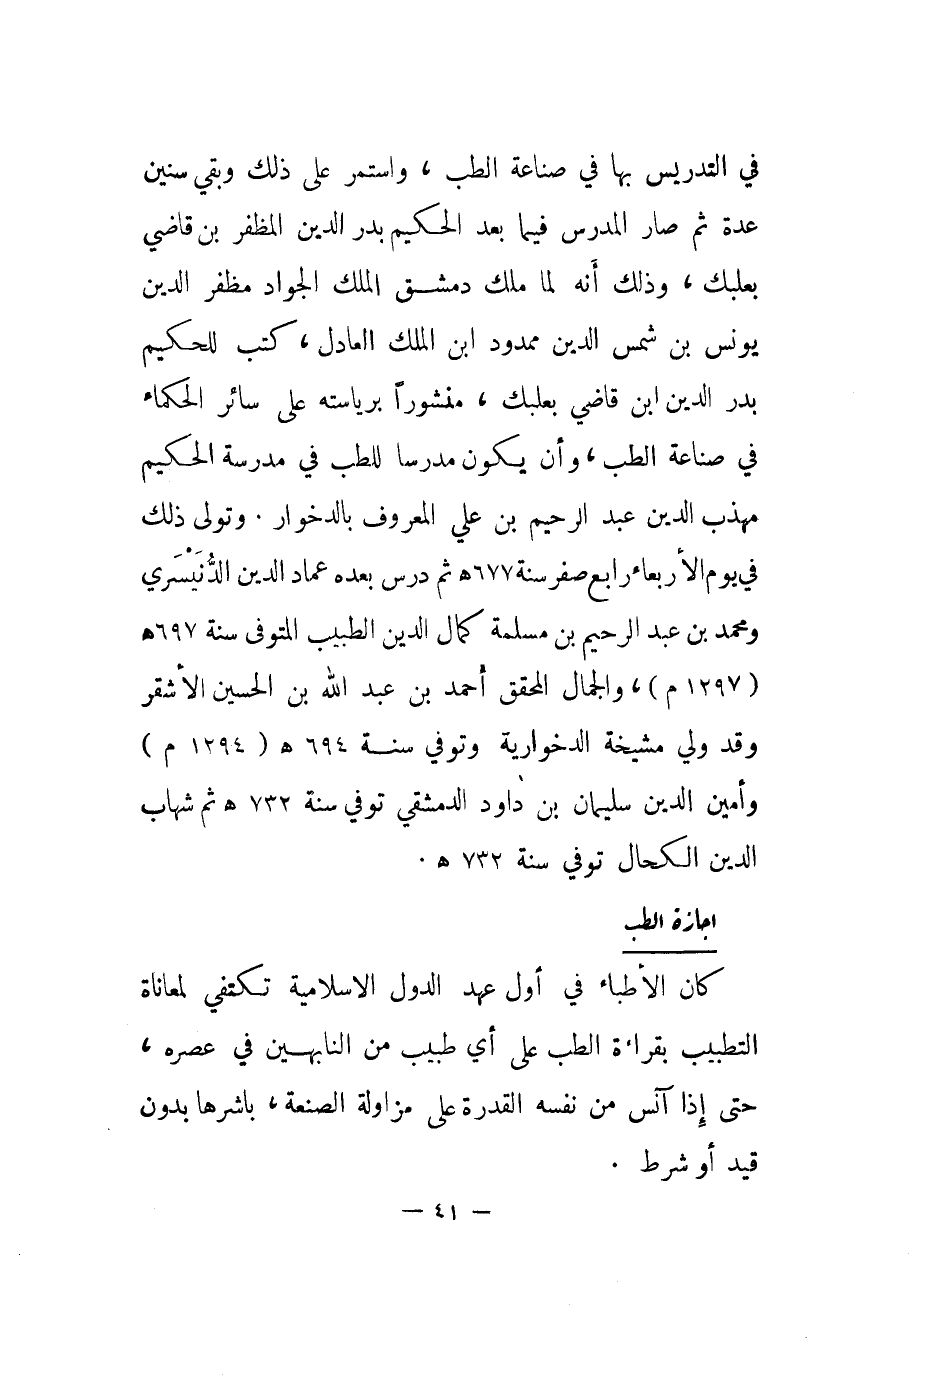 في التدريس بها في صناعة الطب ، واستمر على ذلك وبقي سنين
عدة ثم صار المدرس فيما بعد الحكيم بدر الدين المظفر بن قاضي
بعلبك ، وذلك أنه لما ملك دمشق الملك الجواد مظفر الدين
يونس بن شمس الدين ممدود ابن الملك العادل ، كتب للحكيم
بدر الدين ابن قاضي بعلبك ، منشوراً برياسته على سائر الحكماء
في صناعة الطب ، وأن يكون مدرسا للطب في مدرسة الحكيم
مهذب الدين عبد الرحيم بن علي المعروف بالدخوار . وتولى ذلك
في يوم الأربعاء رابع صفر سنة ٦٧٧ه ثم درس بعده عماد الدين الدُّنَيْسَري
ومحمد بن عبد الرحيم بن مسلمة كمال الدين الطبيب المتوفى سنة ٦٩٧ه
( ١٢٩٧ م ) ، والجمال المحقق أحمد بن عبد الله بن الحسين الأشقر
وقد ولي مشيخة الدخوارية وتوفي سنة ٦٩٤ ه ( ١٢٩٤ م )
وأمين الدين سليمان بن داود الدمشقي توفي سنة ٧٣٢ ه ثم شهاب
الدين الكحال توفي سنة ٧٣٢ ه .
اجازة الطب
كان الأطباء في أول عهد الدول الاسلامية تكتفي لمعاناة
التطبيب بقراءة الطب على أي طبيب من النابهين في عصره ،
حتى إذا آنس من نفسه القدرة على مزاولة الصنعة ، باشرها بدون
قيد أو شرط .
— ٤١ —